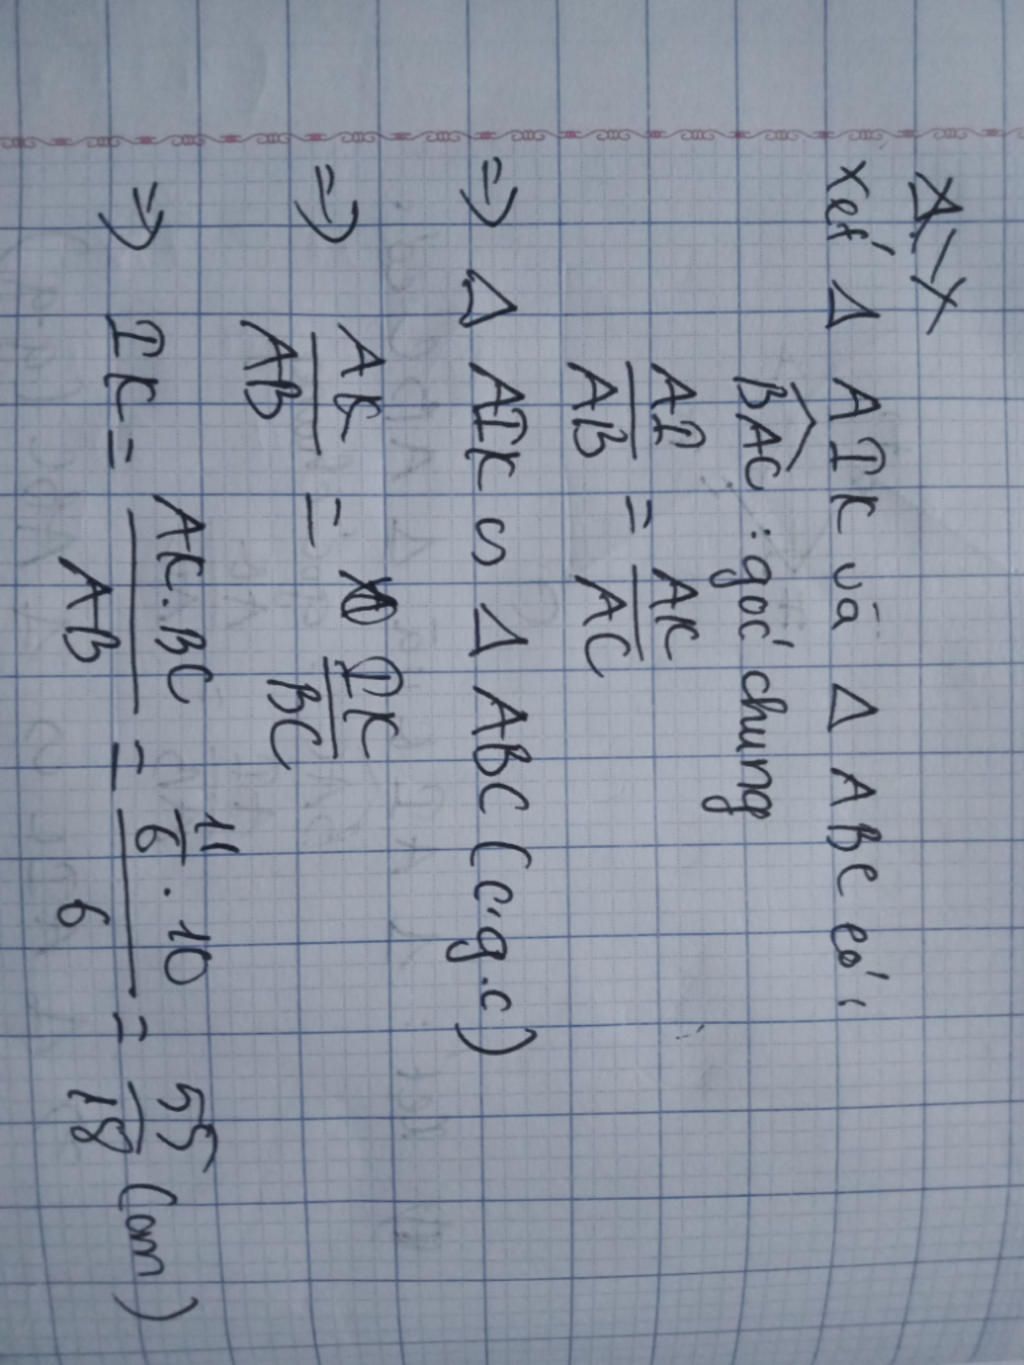 Xét Δ AIK và Δ ABC có:
BAC : góc chung
AI/AB = AK/AC
=> Δ AIK ∽ Δ ABC (c.g.c)
=> AK/AB = IK/BC
=> IK = AK.BC/AB = 11/6 . 10/6 = 55/18 (cm)